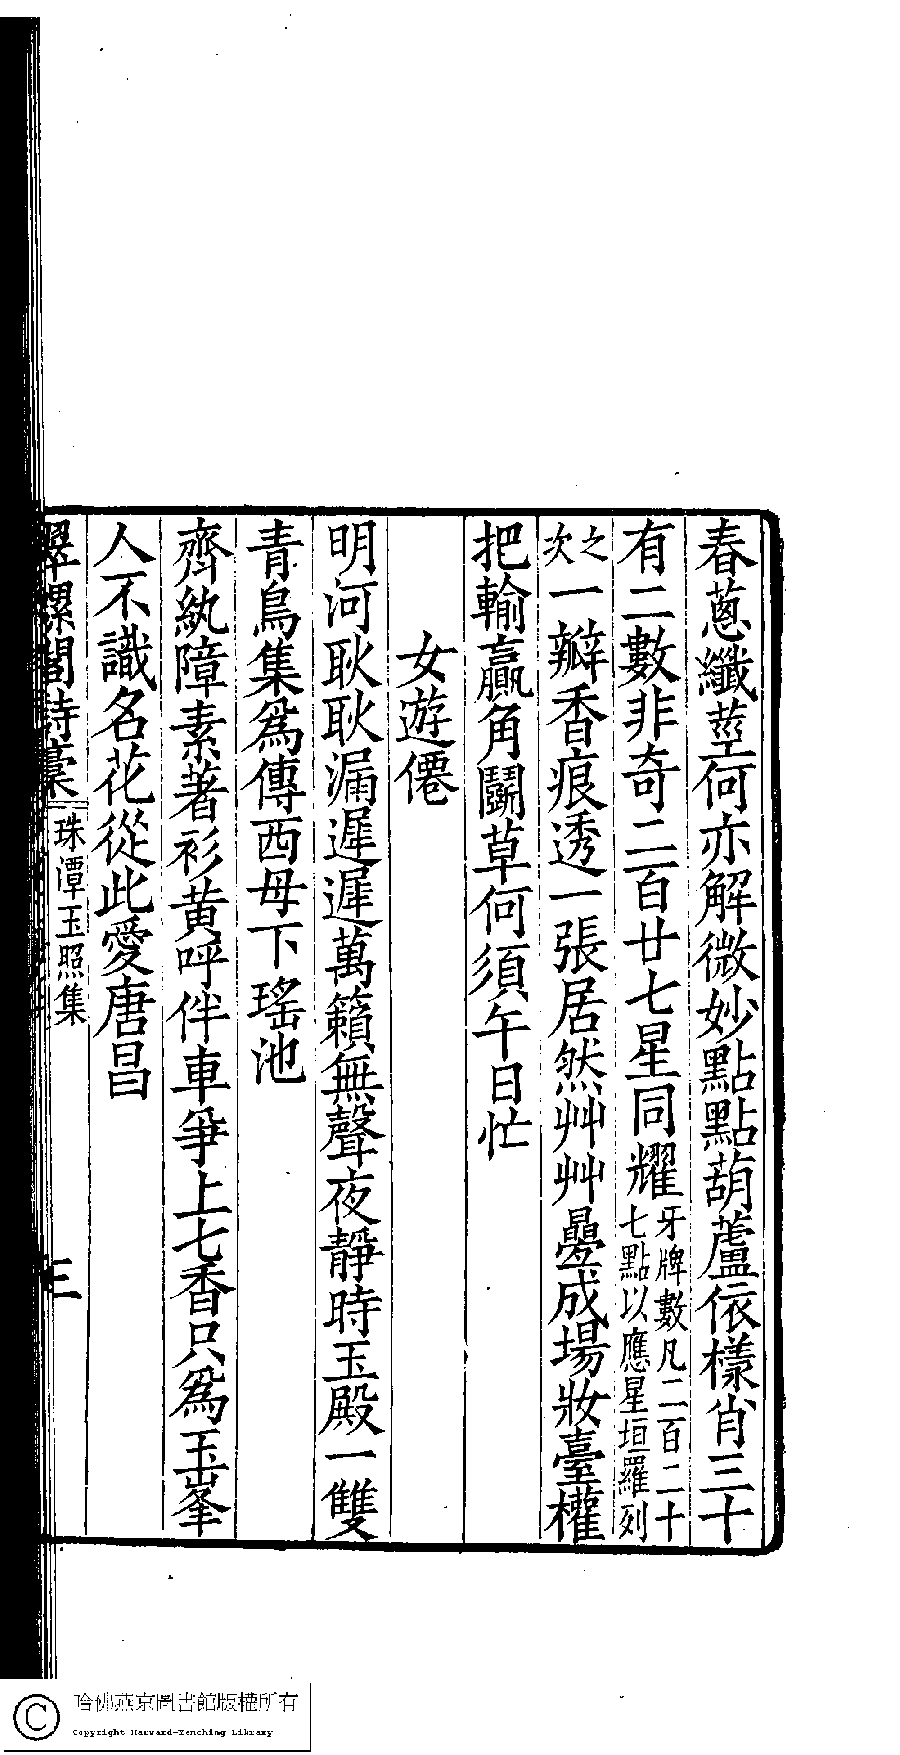 春蔥纖莖何亦解微妙點點葫蘆依樣肖三十
有二數非奇二百廿七星同耀牙牌數凡二百二十七點以應星垣羅列
之次一瓣香痕透一張居然艸艸疊成場妝臺權
把輸贏角鬭草何須午日忙
女遊僊
明河耿耿漏遲遲萬籟無聲夜靜時玉殿一雙
青鳥集爲傳西母下瑤池
齊紈障素著衫黃呼伴車爭上七香只爲玉峯
人不識名花從此愛唐昌
翠螺閣詩稾 珠潭玉照集 三
哈佛燕京圖書館版權所有
Copyright Harvard-Yenching Library